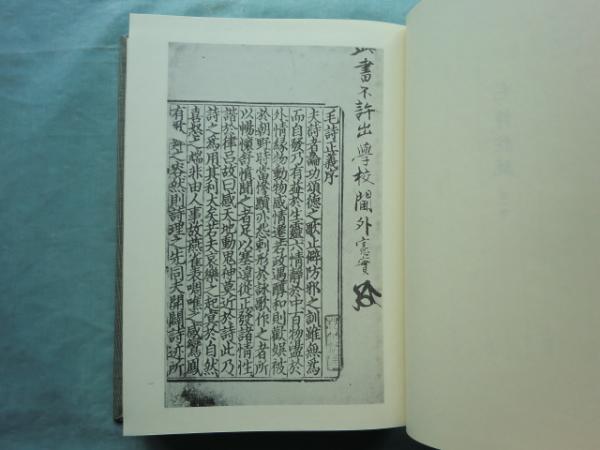 此書不許出學校閫外憲實
毛詩正義序
夫詩者論功頌德之歌止僻防邪之訓雖無為
而自發乃有益於生靈六情靜於中百物盪於
外情緣物動物感情遷若政遇醇和則歡娛被
於朝野時當慘黷亦怨刺形於詠歌作之者所
以暢懷舒憤聞之者足以塞違從正發諸情性
諧於律呂故曰感天地動鬼神莫近於詩此乃
詩之為用其利大矣若夫哀樂之起冥於自然
喜怒之端非由人事故燕雀表啁噍之感鸞鳳
有歌之容然則詩理之先同夫開闢詩迹所